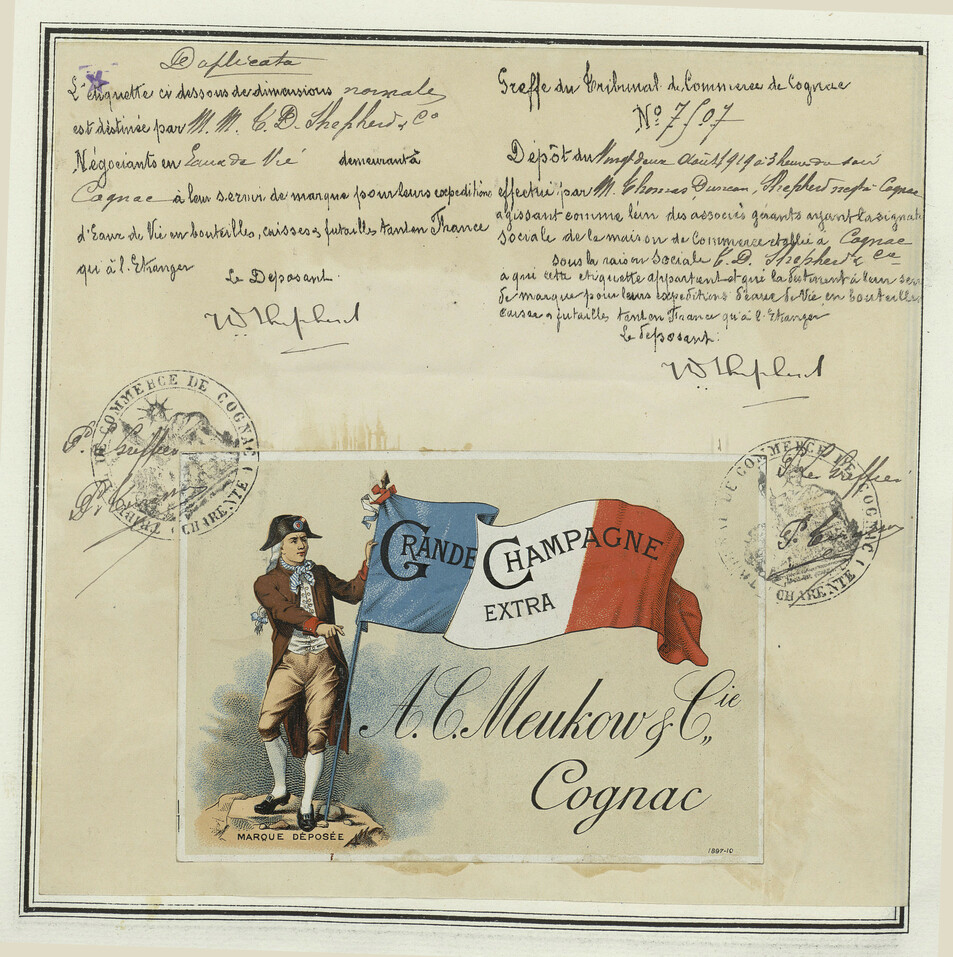 Duplicata
L'étiquette ci dessous de dimensions normales
est destinée par M. M. C. D. Shepherd & Co
Négociants en Eaux de Vie demeurant à
Cognac à leur servir de marque pour leurs expéditions
d'Eaux de Vie en bouteilles, caisses & futailles tant en France
qui à l. Etranger
Le Deposant
Greffe du Tribunal de Commerce de Cognac
No 7507
Dépôt du Vingt deux Aout 1919 à 3 heure du soir
effectué par M. Thomas Duncan Shepherd negt à Cognac
agissant comme l'un des associés gérants ayant la signat
sociale de la maison de Commerce établie à Cognac
sous la raison sociale C. D. Shepherd & Cie
a qui cette etiquette appartient et qui la destinent à leur ser
de marque pour leurs expeditions d'eaux de Vie en bouteilles
caisses & futailles tant en France qu'à l. Etranger
Le deposant.
TRIBUNAL DE COMMERCE DE COGNAC
CHARENTE
P. le Greffier
TRIBUNAL DE COMMERCE DE COGNAC
CHARENTE
P. le Greffier
GRANDE CHAMPAGNE
EXTRA
A. C. Meukow & Cie
Cognac
MARQUE DÉPOSÉE
1897-10